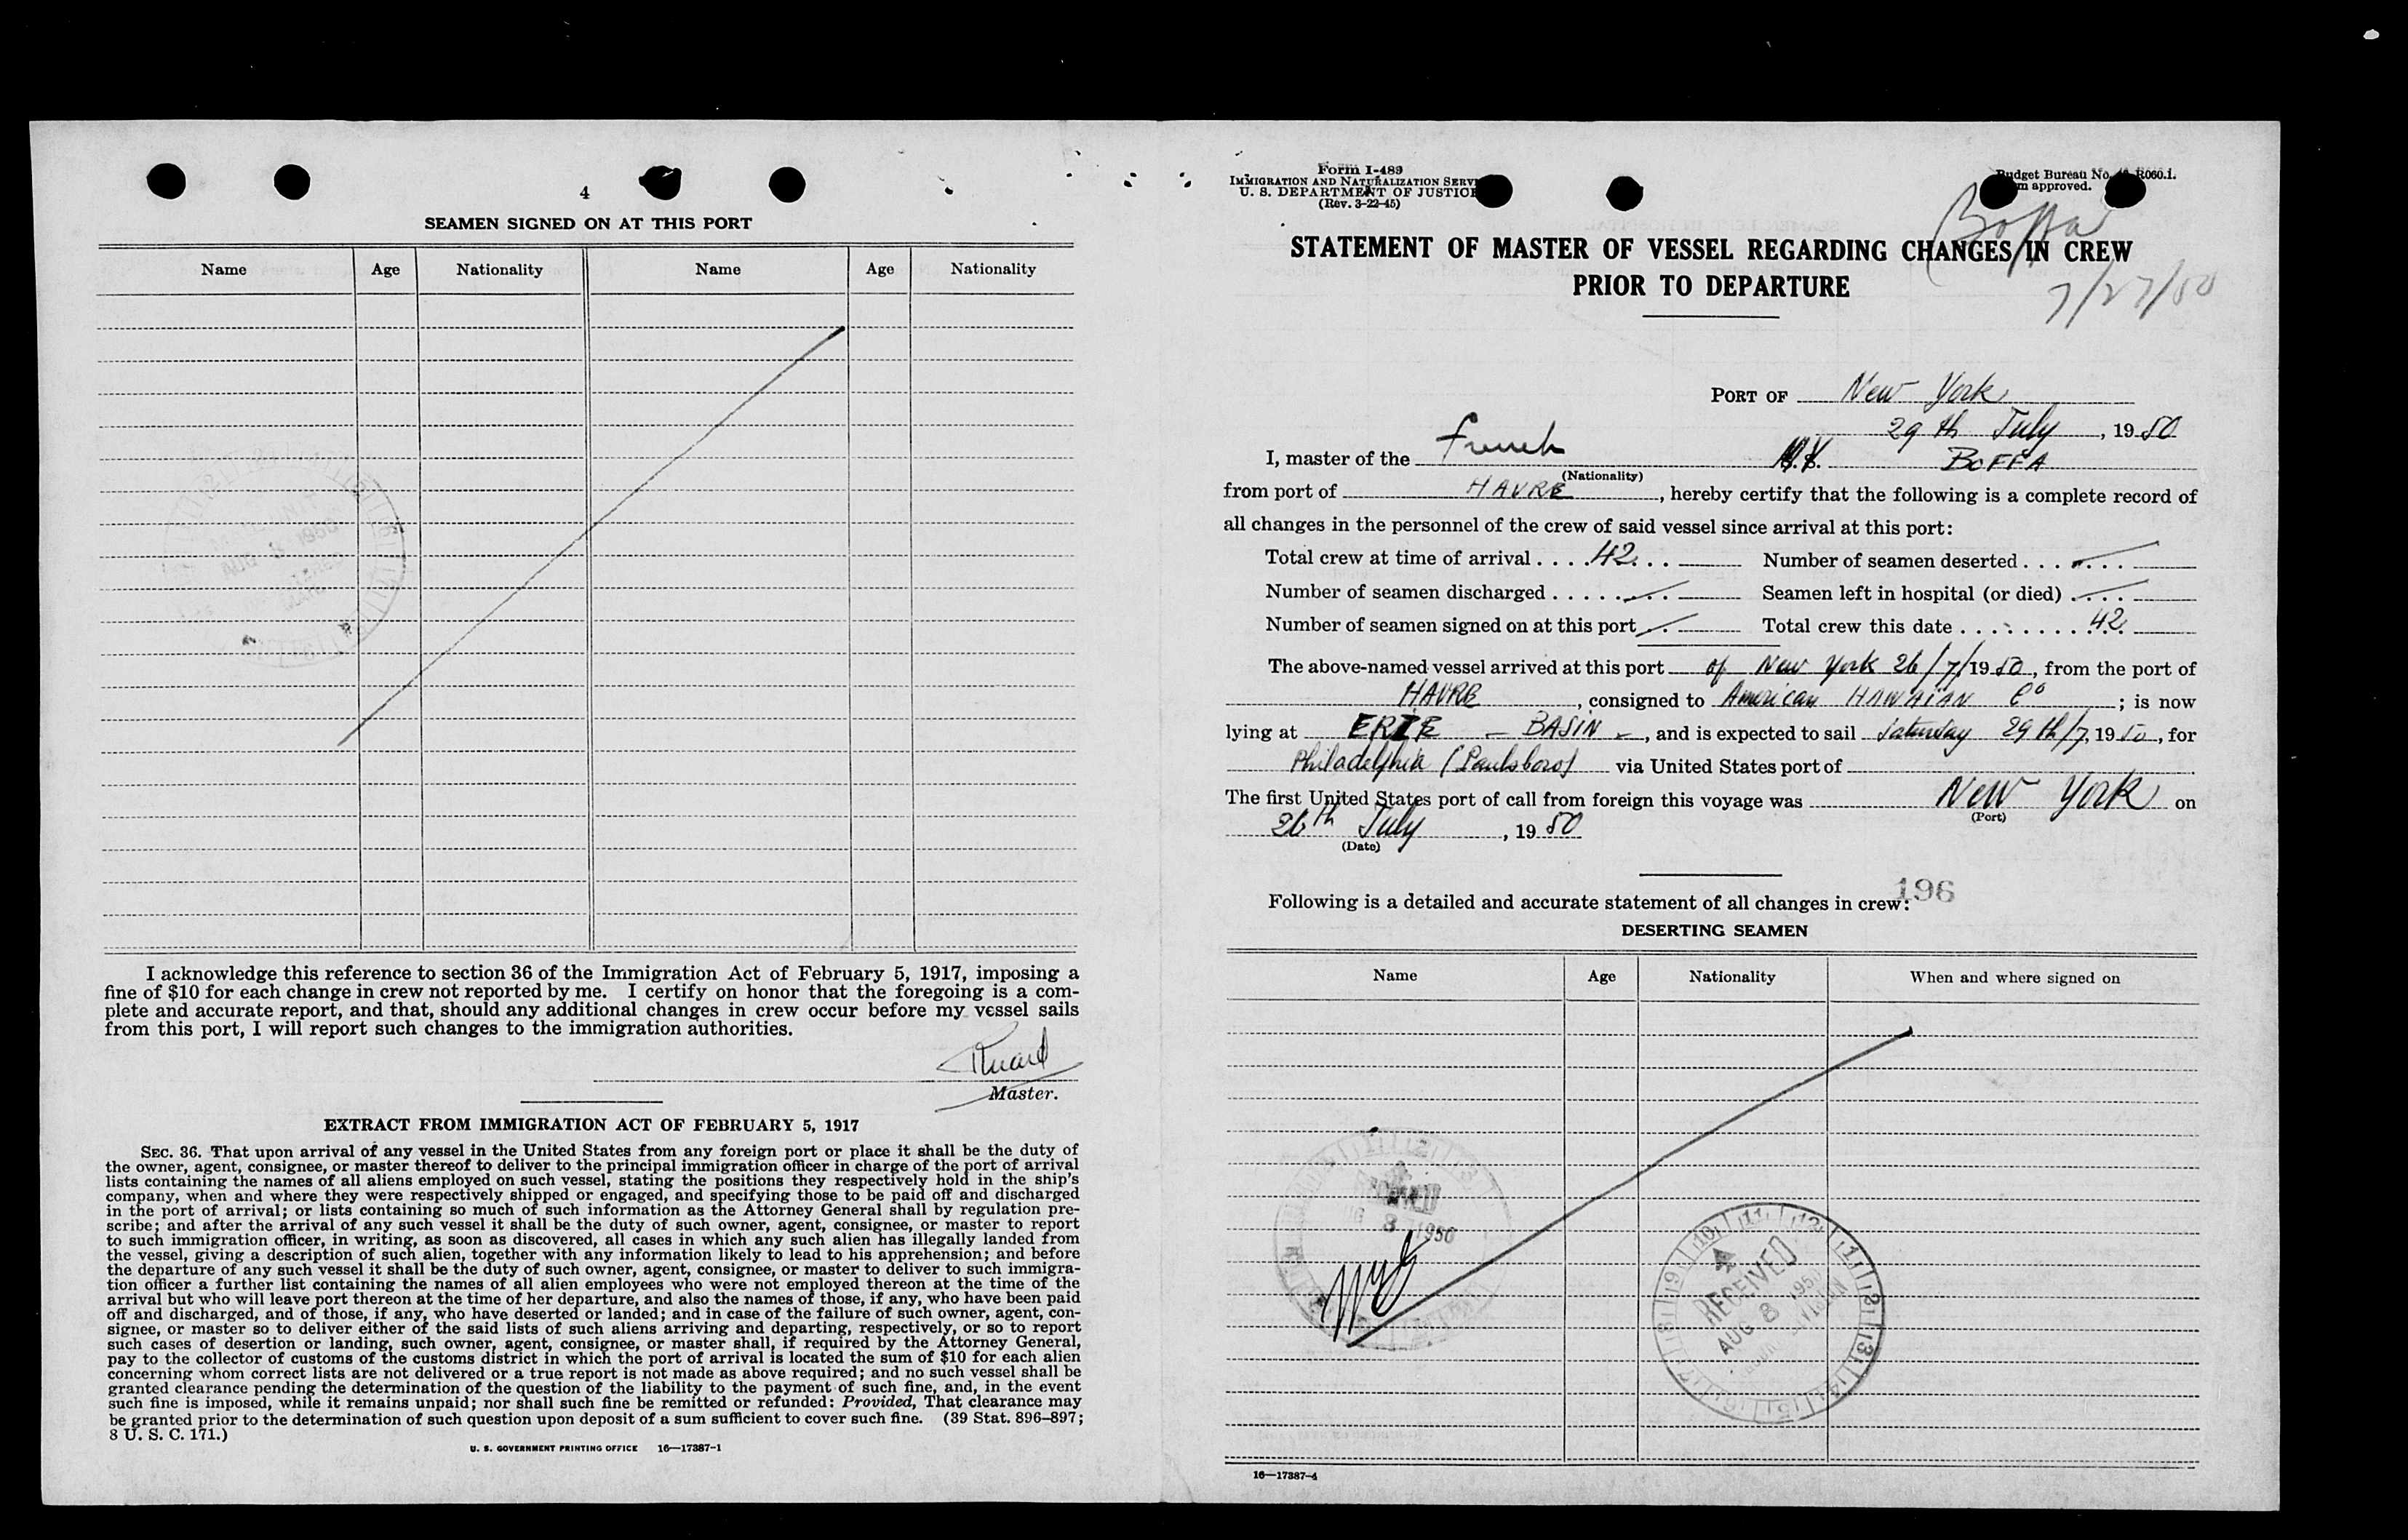 4
SEAMEN SIGNED ON AT THIS PORT
Name Age Nationality Name Age Nationality
I acknowledge this reference to section 36 of the Immigration Act of February 5, 1917, imposing a
fine of $10 for each change in crew not reported by me. I certify on honor that the foregoing is a com-
plete and accurate report, and that, should any additional changes in crew occur before my vessel sails
from this port, I will report such changes to the immigration authorities.
Master.
EXTRACT FROM IMMIGRATION ACT OF FEBRUARY 5, 1917
SEC. 36. That upon arrival of any vessel in the United States from any foreign port or place it shall be the duty of
the owner, agent, consignee, or master thereof to deliver to the principal immigration officer in charge of the port of arrival
lists containing the names of all aliens employed on such vessel, stating the positions they respectively hold in the ship's
company, when and where they were respectively shipped or engaged, and specifying those to be paid off and discharged
in the port of arrival; or lists containing so much of such information as the Attorney General shall by regulation pre-
scribe; and after the arrival of any such vessel it shall be the duty of such owner, agent, consignee, or master to report
to such immigration officer, in writing, as soon as discovered, all cases in which any such alien has illegally landed from
the vessel, giving a description of such alien, together with any information likely to lead to his apprehension; and before
the departure of any such vessel it shall be the duty of such owner, agent, consignee, or master to deliver to such immigra-
tion officer a further list containing the names of all alien employees who were not employed thereon at the time of the
arrival but who will leave port thereon at the time of her departure, and also the names of those, if any, who have been paid
off and discharged, and of those, if any, who have deserted or landed; and in case of the failure of such owner, agent, con-
signee, or master so to deliver either of the said lists of such aliens arriving and departing, respectively, or so to report
such cases of desertion or landing, such owner, agent, consignee, or master shall, if required by the Attorney General,
pay to the collector of customs of the customs district in which the port of arrival is located the sum of $10 for each alien
concerning whom correct lists are not delivered or a true report is not made as above required; and no such vessel shall be
granted clearance pending the determination of the question of the liability to the payment of such fine, and, in the event
such fine is imposed, while it remains unpaid; nor shall such fine be remitted or refunded: Provided, That clearance may
be granted prior to the determination of such question upon deposit of a sum sufficient to cover such fine. (39 Stat. 896–897;
8 U. S. C. 171.)
U. S. GOVERNMENT PRINTING OFFICE 16—17387-1
Form I-489
IMMIGRATION AND NATURALIZATION SERVI
U. S. DEPARTMENT OF JUSTICE
(Rev. 3-22-45)
Budget Bureau No. R060.1.
approved.
Boffa
7/27/50
STATEMENT OF MASTER OF VESSEL REGARDING CHANGES IN CREW
PRIOR TO DEPARTURE
PORT OF New York
29 th July, 1950
I, master of the french BOFFA
(Nationality)
from port of HAVRE, hereby certify that the following is a complete record of
all changes in the personnel of the crew of said vessel since arrival at this port:
Total crew at time of arrival . . . . 42 . . Number of seamen deserted . . . .
Number of seamen discharged . . . . . . Seamen left in hospital (or died) . . . .
Number of seamen signed on at this port . . Total crew this date . . . . . . . . . 42
The above-named vessel arrived at this port of New York 26/7/1950, from the port of
HAVRE, consigned to American HAWAÏAN Co; is now
lying at ERIE - BASIN -, and is expected to sail Saturday 29 th/7, 1950, for
Philadelphia (Paulsboro) via United States port of
The first United States port of call from foreign this voyage was New York on
(Port)
26th July, 1950
(Date)
196
Following is a detailed and accurate statement of all changes in crew:
DESERTING SEAMEN
Name Age Nationality When and where signed on
8 1950
RECEIVED
AUG 8 1950
16—17387-4